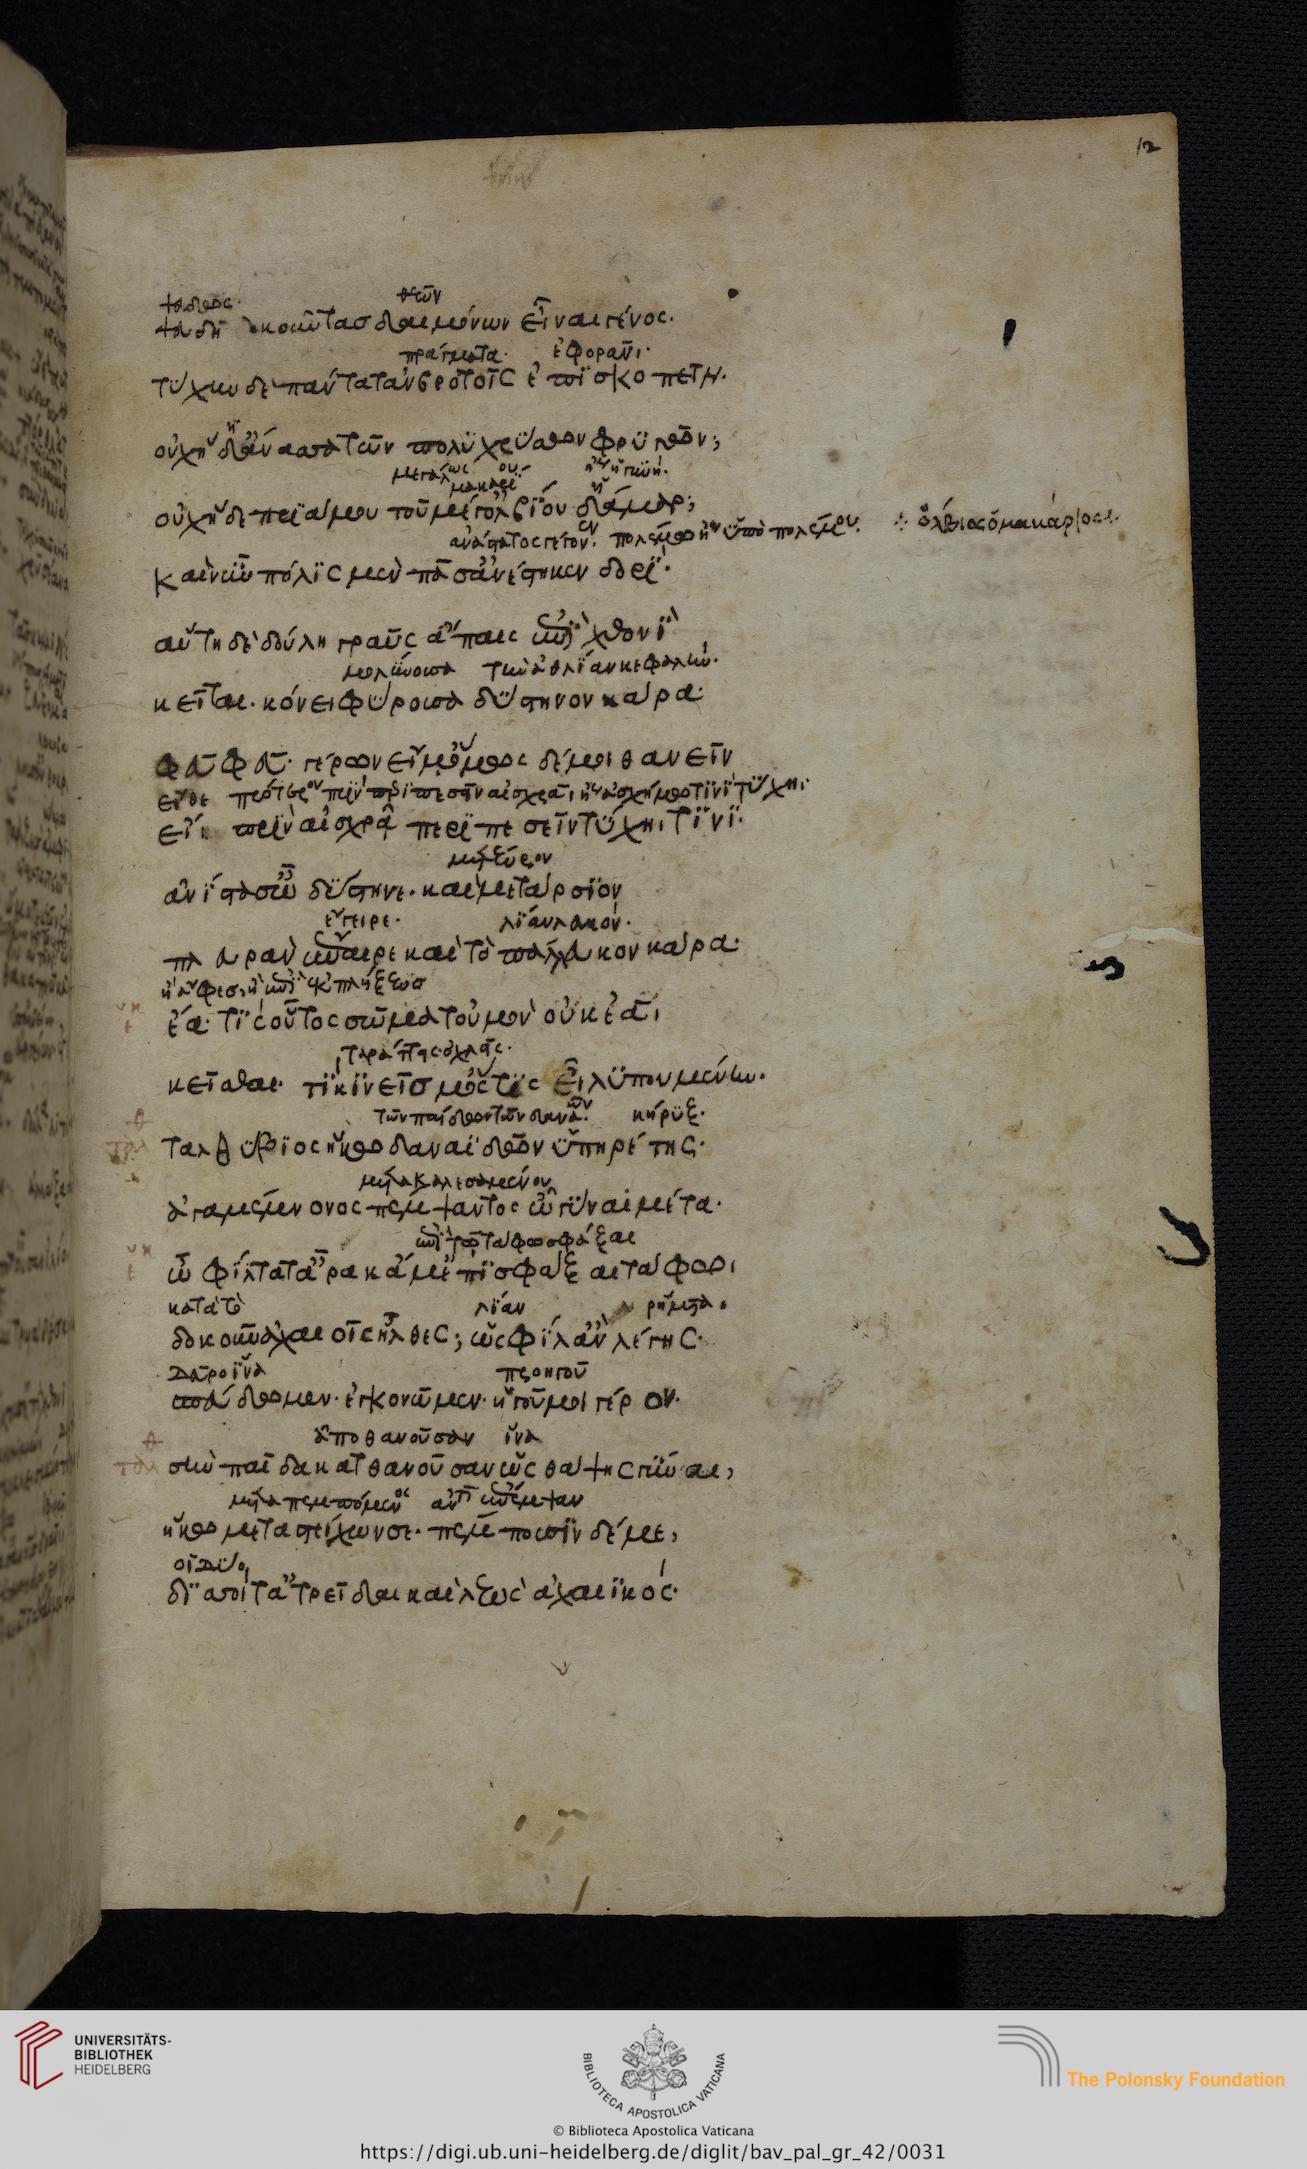 12
ψεῦδος· θεῶν
ψευδῆ δοκοῦντας δαιμόνων εἶναι γένος.
πράγματα· ἐφορᾶν·
τύχην δὲ πάντα τἀν βροτοῖς ἐπισκοπεῖν.
οὐχ ἥδ' ἄνασσα τῶν πολυχρύσων φρυγῶν;
μεγάλως
οὐχ ἥδε πριάμου τοῦ μέγ' ὀλβίου δάμαρ;
ἀνάστατος γέγονεν. πολέμω ὑπὸ πολέμου.
ὄλβιος ὁ μακάριος
καὶ νῦν πόλις μὲν πᾶσ' ἀνέστηκεν δορί·
αὕτη δὲ δούλη γραῦς ἄπαις ἐπὶ χθονὶ
μολύνουσα τὴν ἀθλίαν κεφαλήν.
κεῖται· κόνει φύρουσα δύστηνον κάρα·
φεῦ φεῦ· γέρων εἴμ' ὅμως δέ μοι θανεῖν
εἴθε πρότερον πρὶν περιπεσεῖν αἰσχρᾶ
εἴη πρὶν αἰσχρᾷ περιπεσεῖν τύχῃ τινί·
ἀνίστασ' ὦ δύστηνε· καὶ μετάρσιον
ἔγειρε· λίαν λευκόν·
πλευρὰν ἔπαιρε καὶ τὸ πάλλευκον κάρα·
ἔα· τίς οὗτος σῶμα τοὐμὸν οὐκ ἐᾷ
κεῖσθαι· τί κινεῖς μ' ὅστις εἶ λυπουμένην.
κήρυξ·
ταλθύβιος ἥκω δαναϊδῶν ὑπηρέτης·
ἀγαμέμνονος πέμψαντος ὦ γύναι μέτα·
ἐπὶ τῷ τάφω σφάξαι
ὦ φίλτατ' ἆρα κἄμ' ἐπισφάξαι τάφῳ
κατὰ τὸ λίαν ῥήματα
δοκοῦν ἀχαιοῖς ἦλθες; ὡς φίλ' ἂν λέγῃς·
προηγοῦ
σπεύδωμεν· ἐγκονῶμεν· ἡγοῦ μοι γέρον·
ἀποθανοῦσαν ἵνα
ταλ σὴν παῖδα κατθανοῦσαν ὡς θάψῃς γύναι,
ἥκω μεταστείχων σε· πέμπουσιν δέ με,
οἱ δύο
δισσοί τ' ἀτρεῖδαι καὶ λεὼς ἀχαιικός·
UNIVERSITÄTS-
BIBLIOTHEK
HEIDELBERG
BIBLIOTECA APOSTOLICA VATICANA
The Polonsky Foundation
© Biblioteca Apostolica Vaticana
https://digi.ub.uni-heidelberg.de/diglit/bav_pal_gr_42/0031